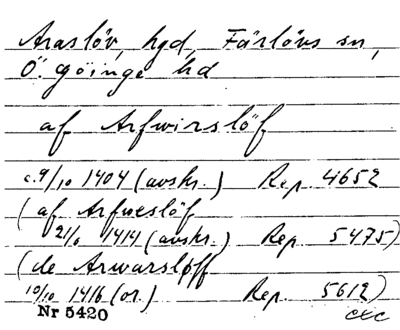 Araslöv, hgd, Färlövs sn,
Ö. Göinge hd
af Arfwirslöf
c. 9/10 1404 (avskr.) Rep. 4652
(af Arfueslöf
21/6 1414 (avskr.) Rep. 5475)
(de Arwarsløff
10/10 1416 (or.) Rep. 5612)
Nr 5420